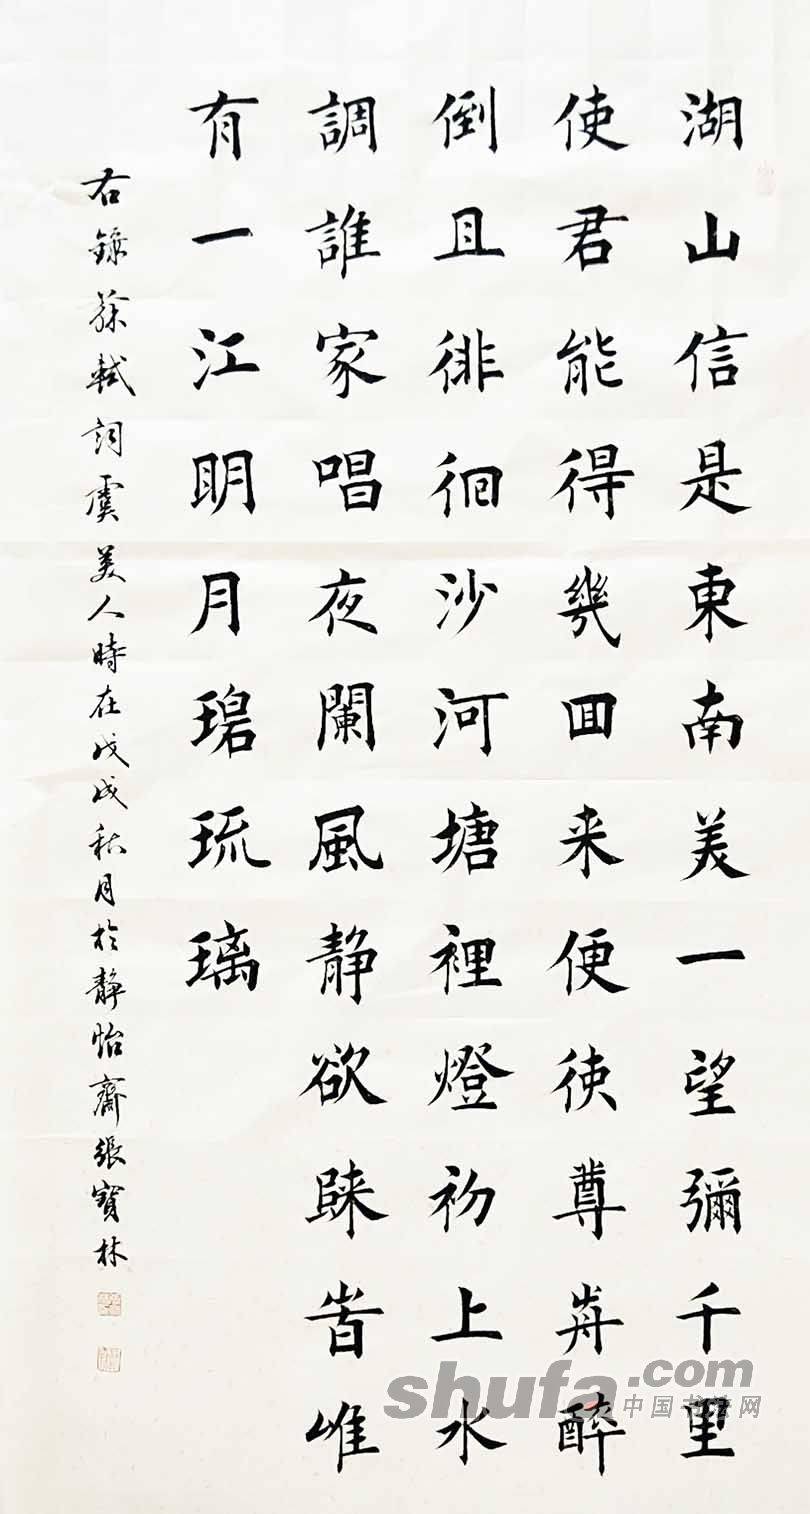 湖山信是東南美一望彌千里
使君能得幾囬来便使尊歬醉
倒且徘徊沙河塘裡燈初上水
調誰家唱夜闌風静欲歸旹唯
有一江明月碧琉璃
右錄蘇軾詞虞美人時在戊戌秋月於靜怡齋張寶林
shufa.com
中国书法网